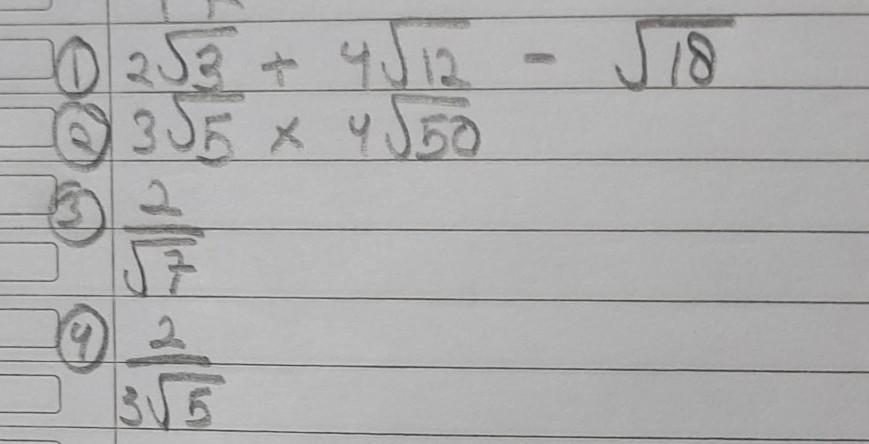 ① 2√3 + 4√12 - √18
② 3√5 × 4√50
③ 2/√7
④ 2/3√5